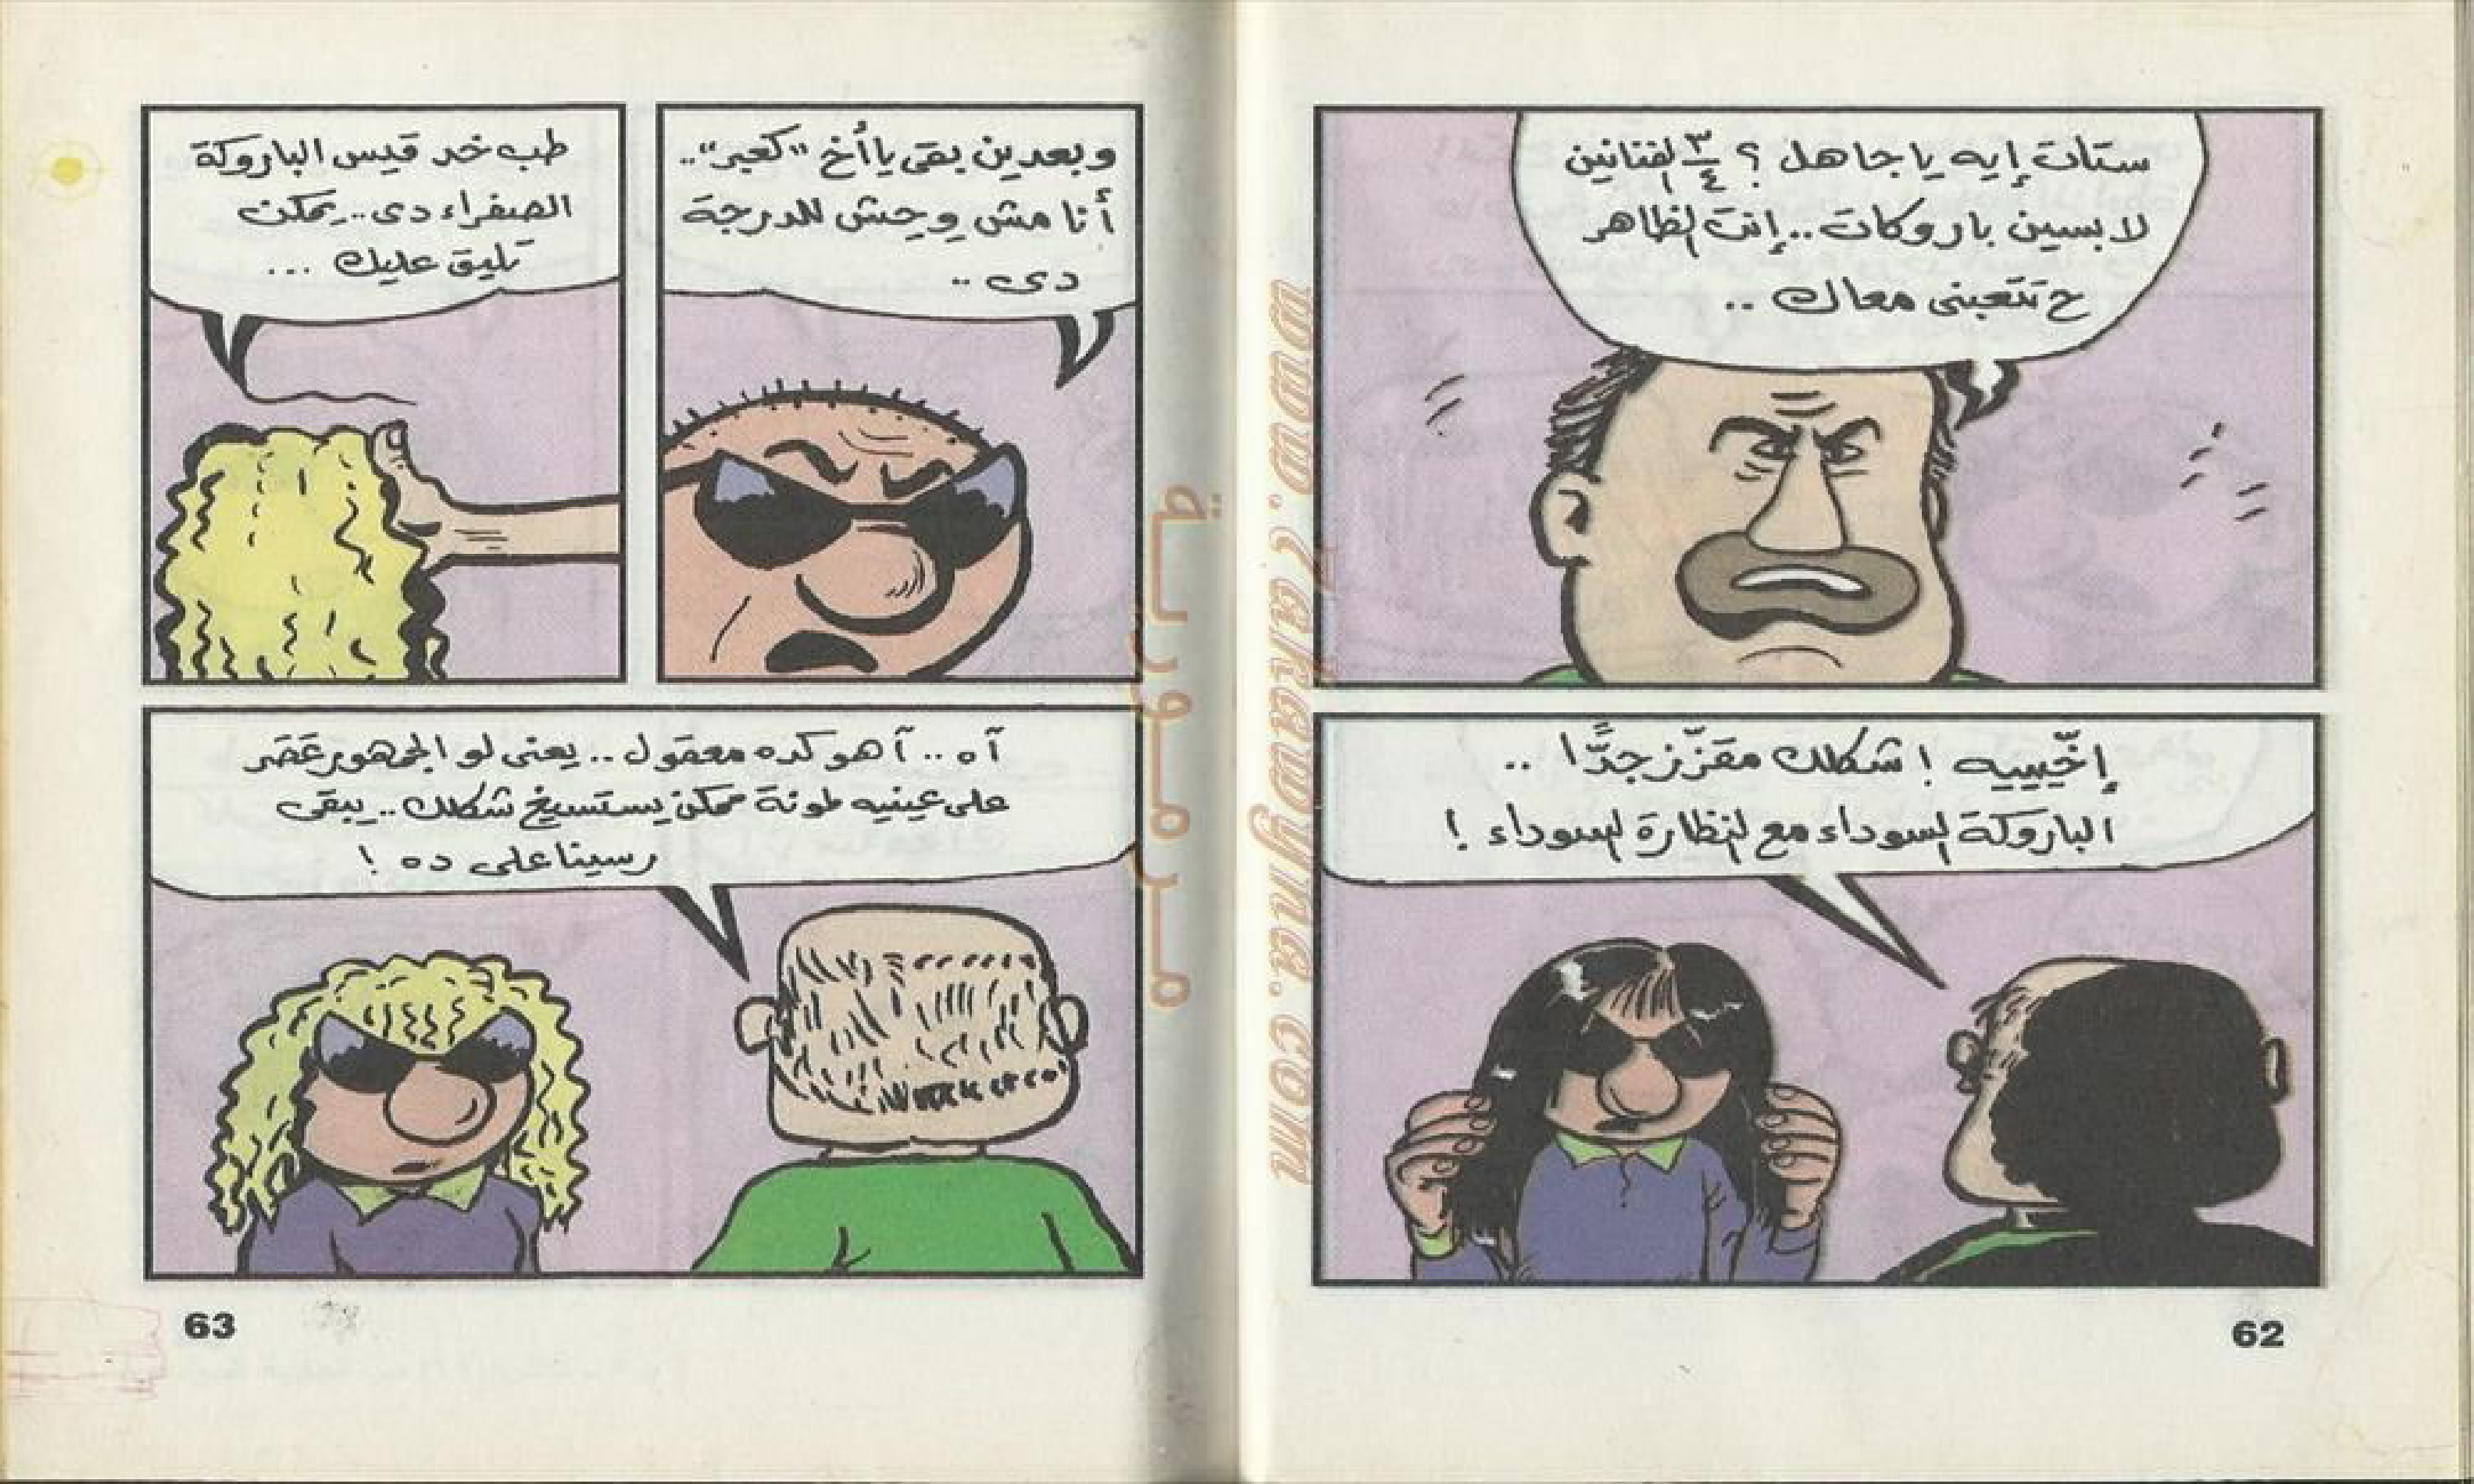 ستات إيه يا جاهل ؟ ٣/٤ الفنانين
لابسين باروكات.. إنت الظاهر
ح تتعبنى معاك ..
إخّيييه ! شكلك مقزّز جدًّا ..
الباروكة السوداء مع النظارة السوداء !
62
وبعدين بقى يا أخ "كعبر"..
أنا مش وِحِش للدرجة
دى ..
طب خد قيس الباروكة
الصفراء دى.. يمكن
تليق عليك ...
آه .. آهو كده معقول .. يعنى لو الجمهور عَصَر
على عينيه لمونة ممكن يستسيغ شكلك.. يبقى
رسينا على ده !
63
مرمورية
www.Zakawyna.com